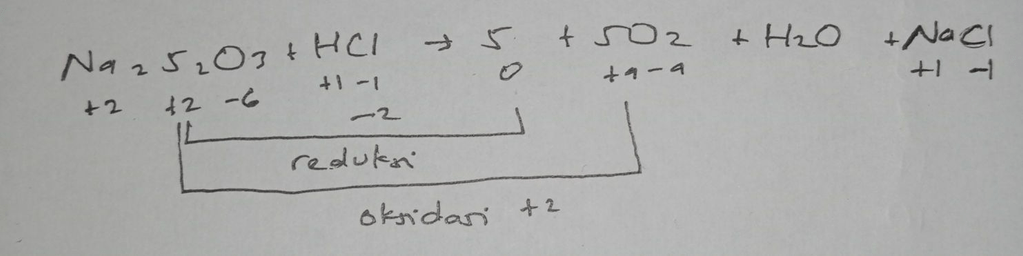 Na2S2O3 + HCl → S + SO2 + H2O + NaCl
+2 +2 -6 +1 -1 0 +4 -4 +1 -1
-2
reduksi
oksidasi +2